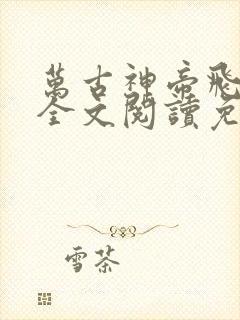 萬古神帝飛
全文閱讀免
雪茶